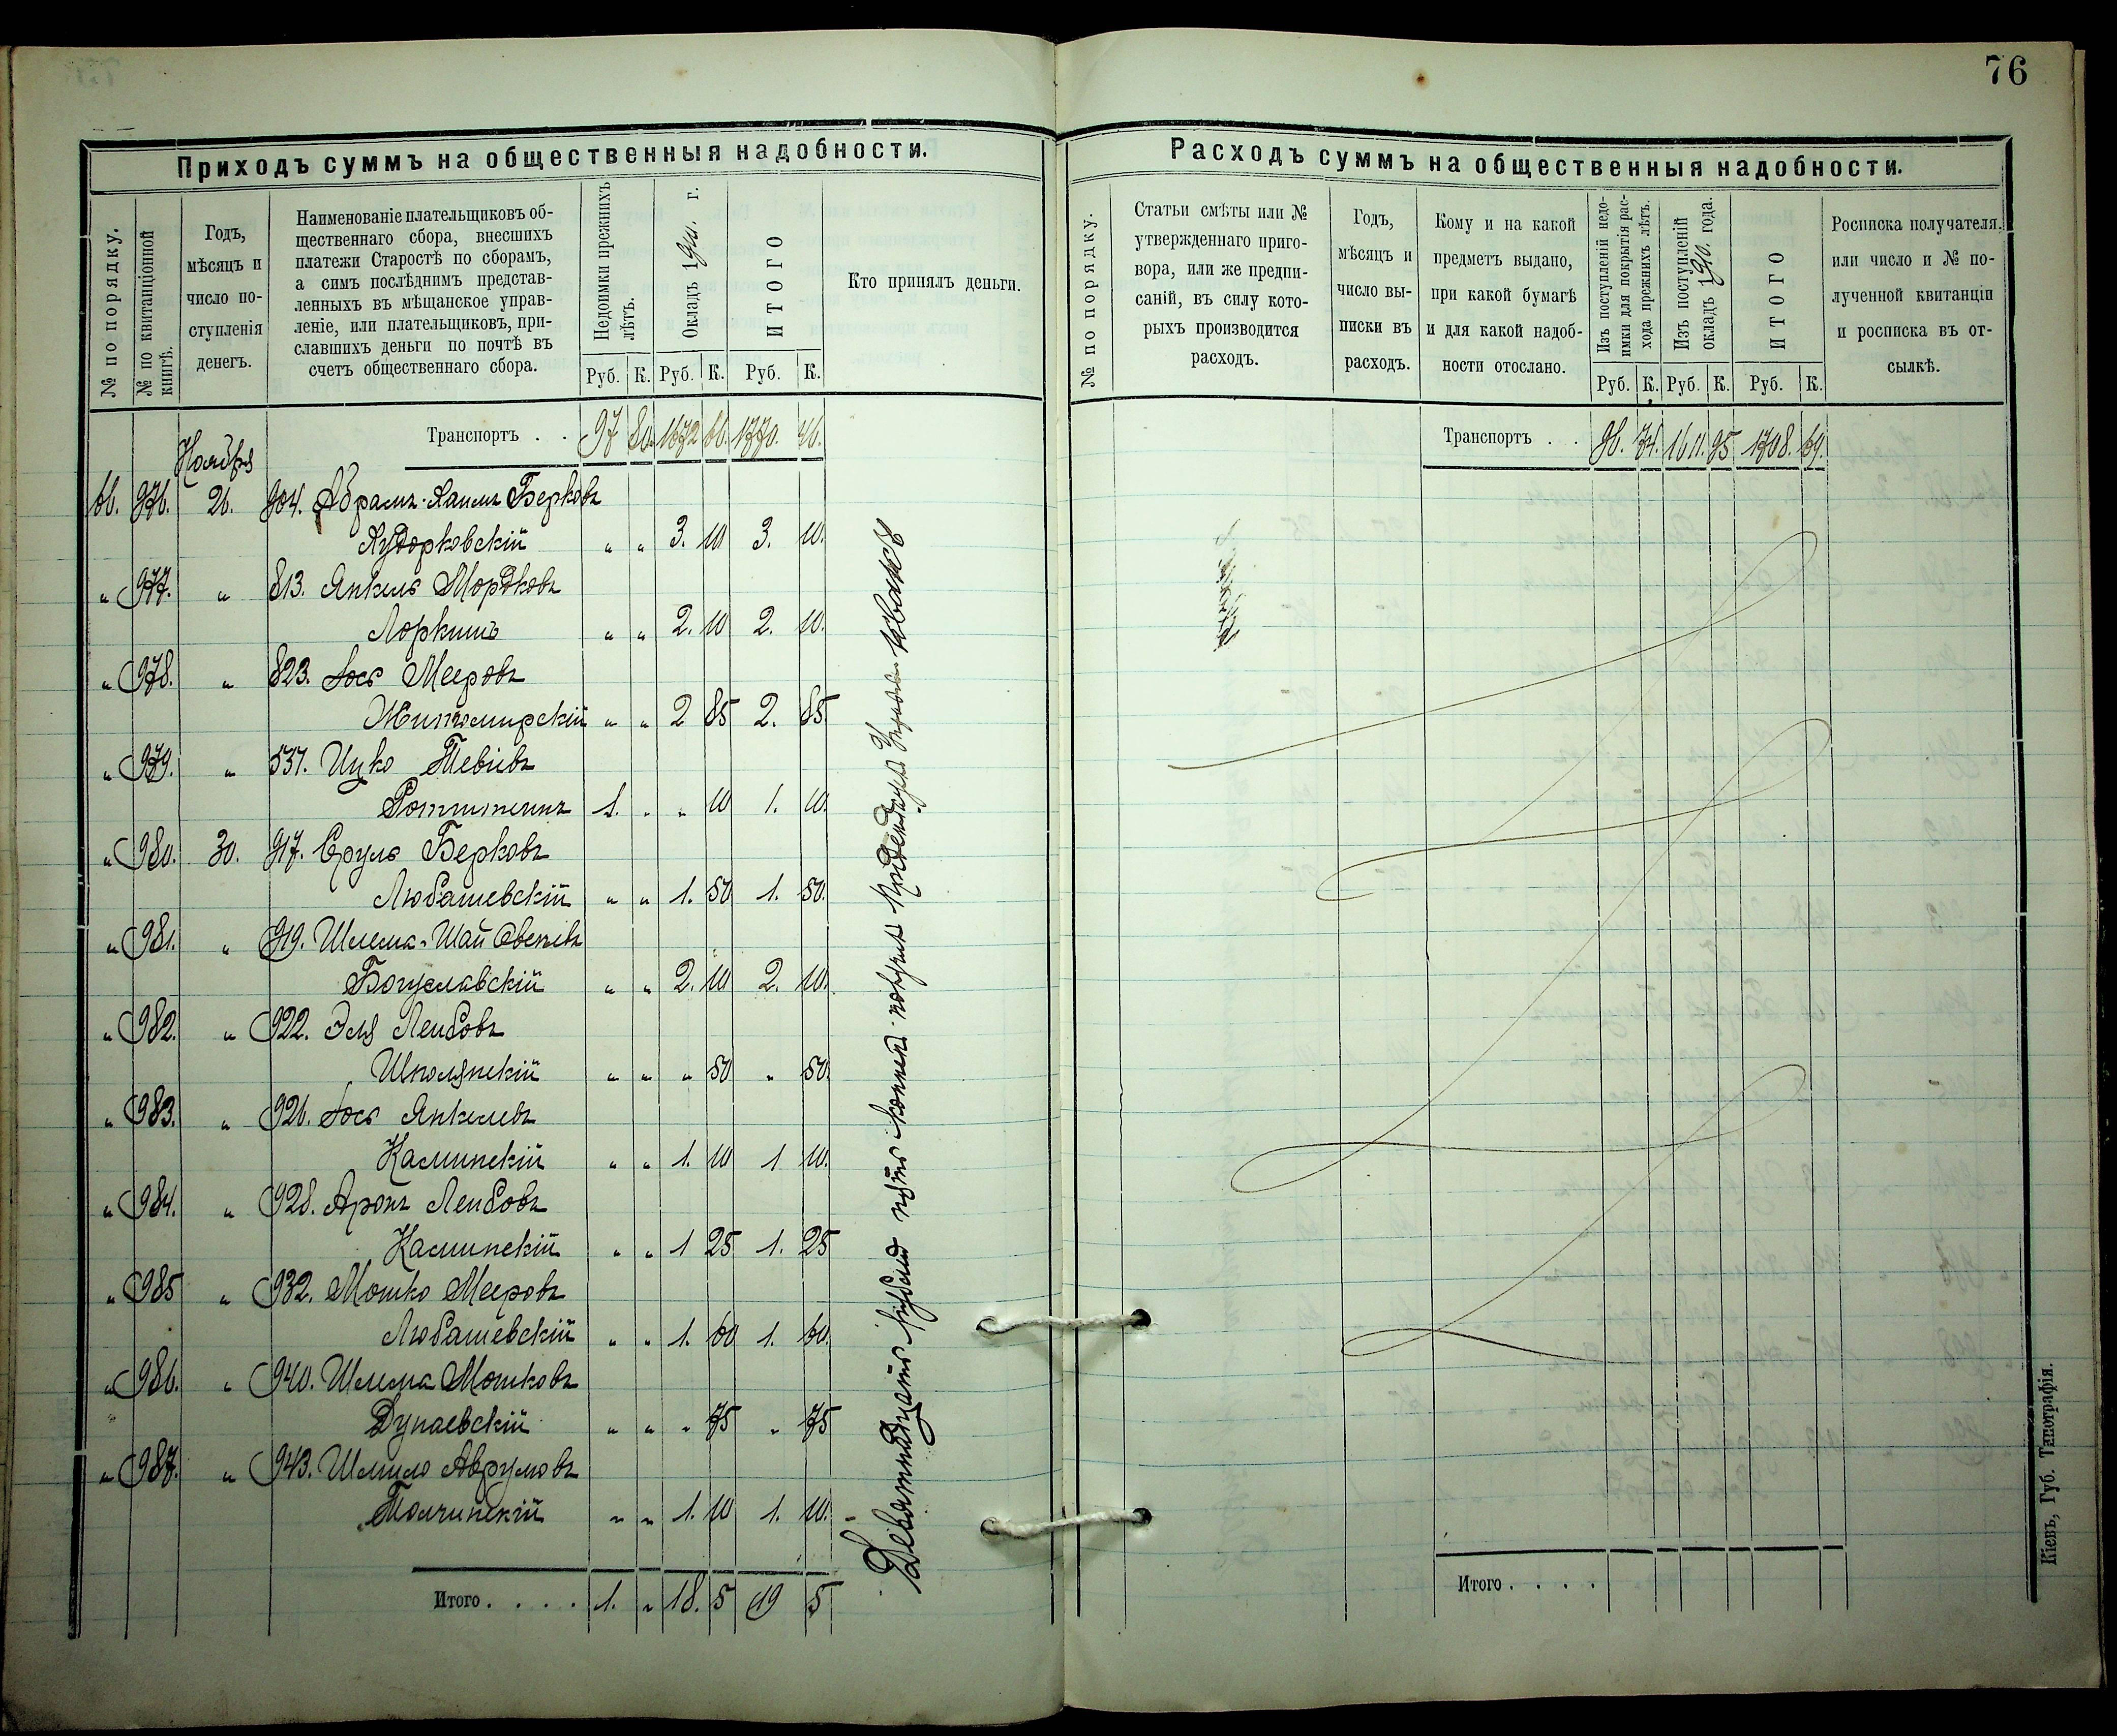 76
Приходъ суммъ на общественныя надобности.
№ по порядку.
№ по квитанціонной книгѣ.
Годъ,
мѣсяцъ и
число по-
ступленія
денегъ.
Наименованіе плательщиковъ об-
щественнаго сбора, внесшихъ
платежи Старостѣ по сборамъ,
а симъ послѣднимъ представ-
ленныхъ въ мѣщанское управ-
леніе, или плательщиковъ, при-
славшихъ деньги по почтѣ въ
счетъ общественнаго сбора.
Недоимки прежнихъ
лѣтъ.
Окладъ 1910. г.
ИТОГО
Руб. К. Руб. К. Руб. К.
Кто принялъ деньги.
Транспортъ . . 97 80. 1672 66. 1770. 46.
Ноября
66. 976. 26. 904. Абрамъ-Хаимъ Берковъ
" " 3. 10 3. 10.
" 977. " 813. Янкель Мордковъ
Лоркинъ " " 2. 10 2. 10.
" 978. " 823. Іось Мееровъ
Житомирскій " " 2 85 2. 85
" 979. " 537. Ицко Тевіевъ
1. " " 10 1. 10.
" 980. 30. 917. Сруль Берковъ
Любашевскій " " 1. 50 1. 50.
" 981. " 919. Шлема-Шай
Богуславскій " " 2. 10 2. 10.
" 982. " 922. Эля Лейбовъ
Шполянскій " " " 50 " 50.
" 983. " 926. Іось Янкелевъ
Каминскій " " 1. 10 1 10.
" 984. " 928. Аронъ Лейбовъ
Каминскій " " 1 25 1. 25
" 985 " 932. Мошко Мееровъ
Любашевскій " " 1. 60 1. 60.
" 986. " 940. Шлема Мошковъ
Дунаевскій " " " 75 " 75
" 987. " 943. Шмило Аврумовъ
Толчинскій " " 1. 10 1. 10.
Итого . . . . 1. " 18. 5 19 5
Девятнадцать рублей пять копѣекъ
Расходъ суммъ на общественныя надобности.
№ по порядку.
Статьи смѣты или №
утвержденнаго приго-
вора, или же предпи-
саній, въ силу кото-
рыхъ производится
расходъ.
Годъ,
мѣсяцъ и
число вы-
писки въ
расходъ.
Кому и на какой
предметъ выдано,
при какой бумагѣ
и для какой надоб-
ности отослано.
Изъ поступленій недо-
имки для покрытія рас-
хода прежнихъ лѣтъ.
Изъ поступленій
окладъ 1910. года.
ИТОГО
Руб. К. Руб. К. Руб. К.
Росписка получателя,
или число и № по-
лученной квитанціи
и росписка въ от-
сылкѣ.
Транспортъ . . 96. 74. 1611. 95 1708. 69.
Итого . . . .
Кіевъ, Губ. Типографія.